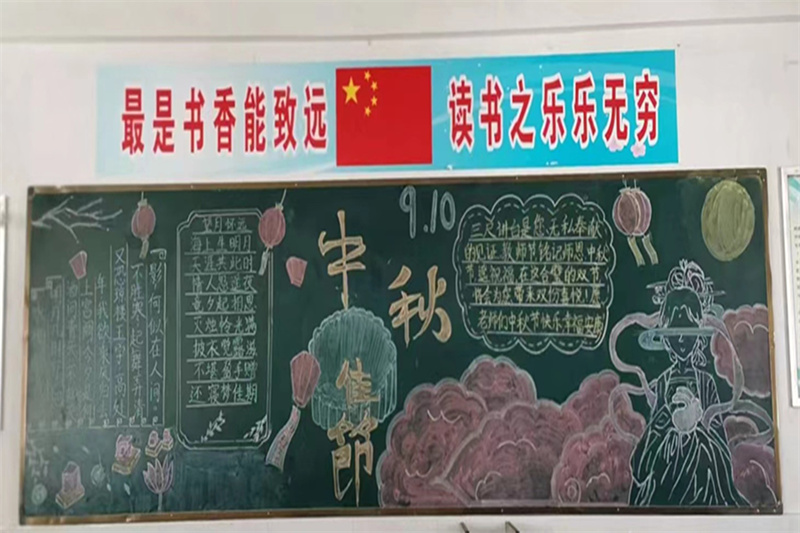 最是书香能致远
读书之乐乐无穷
9.10
中秋
佳節
望月怀远
海上生明月
天涯共此时
情人怨遥夜
竟夕起相思
灭烛怜光满
披衣觉露滋
不堪盈手赠
还寝梦佳期
三尺讲台是您无私奉献
的见证 教师节铭记师恩 中秋
节送祝福
双节
将会为您带来双份喜悦！愿
老师们中秋节快乐幸福
又恐琼楼玉宇，高处
不胜寒。起舞弄清
影，何似在人间。